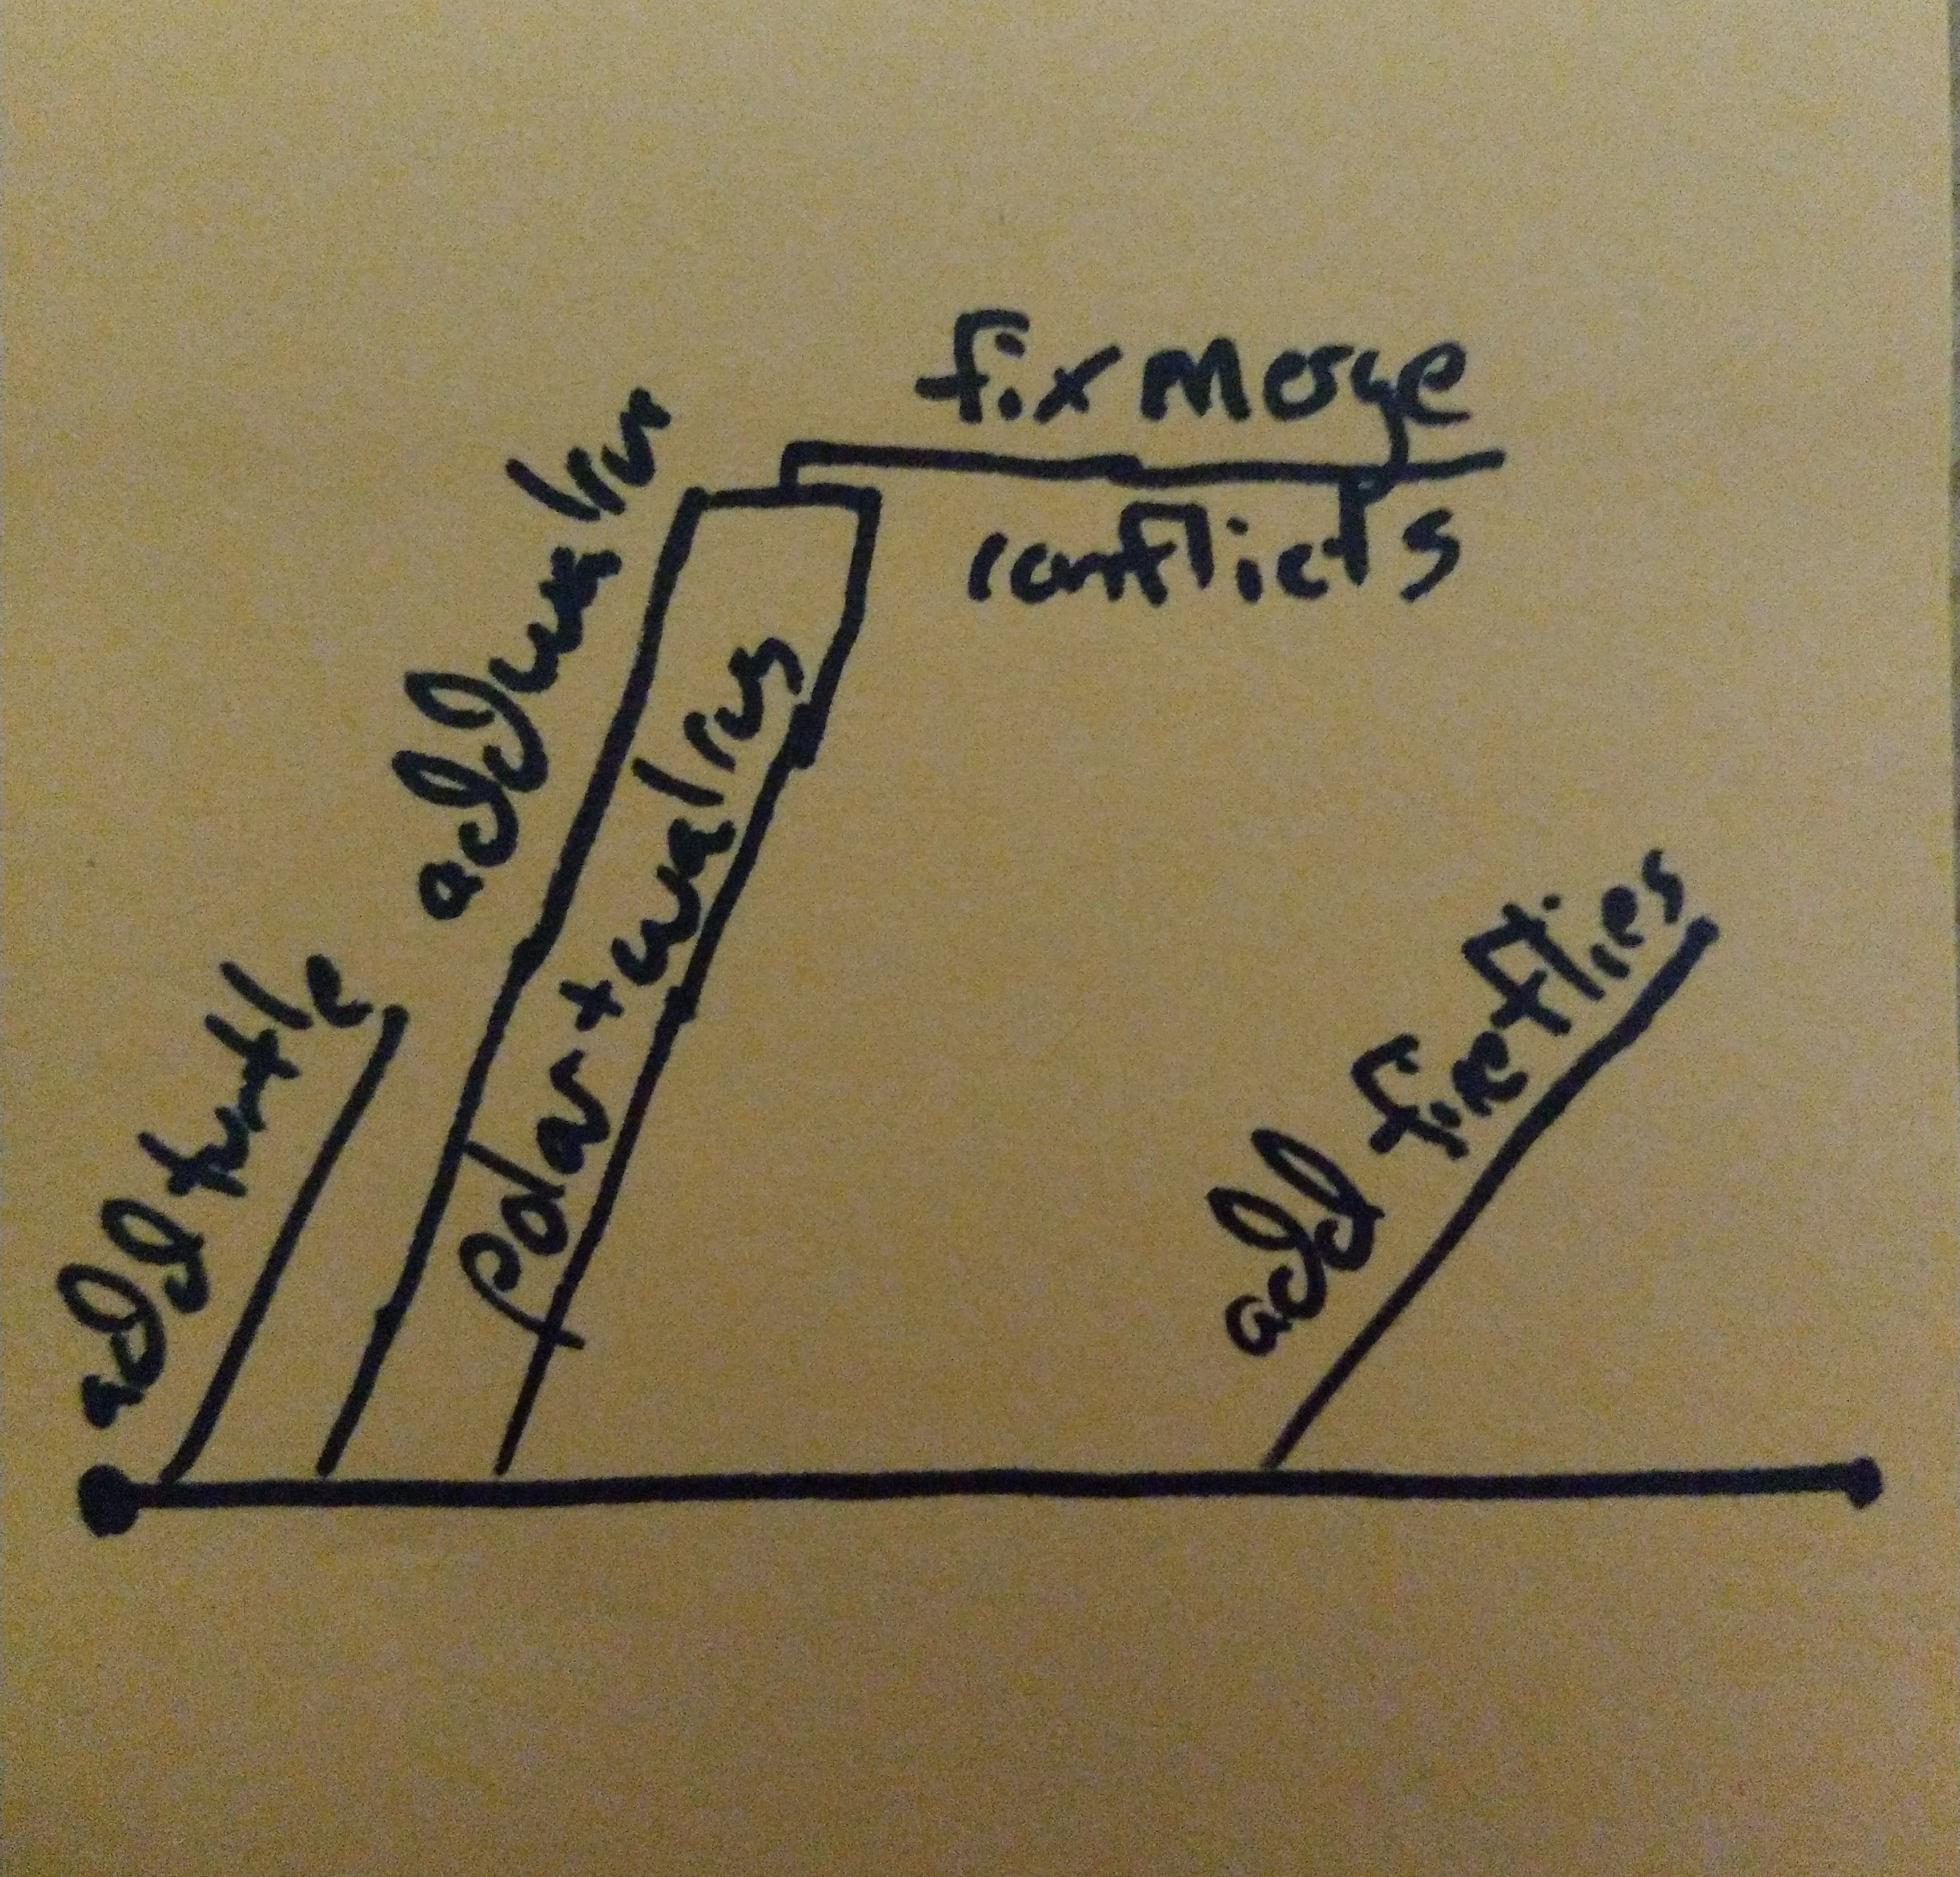 add turtle
add walrus
polar + walrus
fix merge
conflicts
add fireflies